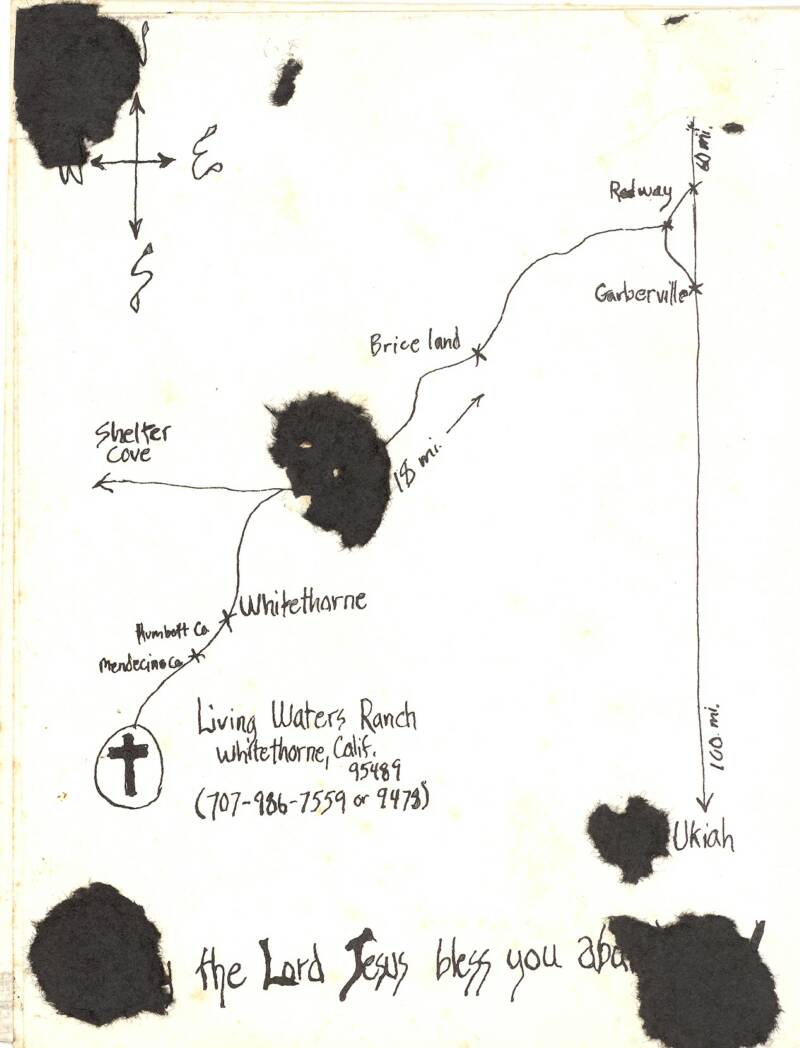 E
S
60 mi.
Redway
Garberville
Briceland
18 mi.
Shelter
Cove
Whitethorne
Humboltt Co
Mendecino Co
Living Waters Ranch
Whitethorne, Calif.
95489
(707-986-7559 or 9478)
100 mi.
Ukiah
the Lord Jesus bless you